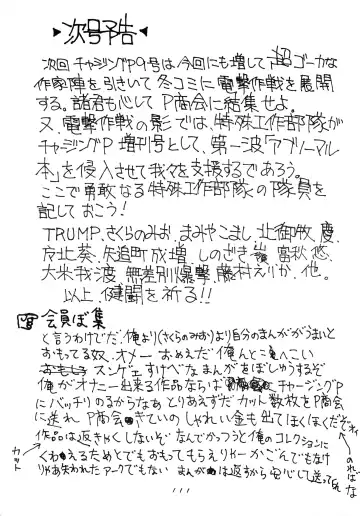 次号予告
次回チャジングP9号は、今回にも増して超ゴーカな
作家陣を引きいて冬コミに電撃作戦を展開
する。諸君も心してP商会に結集せよ。
又、電撃作戦の影では、特殊工作部隊が
チャジングP増刊号として、第一波「アブノーマル
本」を侵入させて我々を支援するであろう。
ここで勇敢なる特殊工作部隊の隊員を
記しておこう!
TRUMP. さくらのみお. まみやこまし. 北御牧慶.
戊止葵. 矢追町成増. しのざき嶺. 富秋悠.
大米我波. 無差別爆撃. 藤村えりか. 他。
以上、健闘を祈る!!
会員ぼ集
と言うわけでだ. 俺より(さくらのみお)より自分のまんががうまいと
おもってる奴. オメー おめえだ 俺んとこへこい
スンゲェすけべなまんがをぼしゅうするぞ
俺がオナニー出来る作品ならば チャージングP
にバッチリのるからなあ とりあえずだ カット数枚をP商会
に送れ P商会きていのしゃれい金も出てほくほくだぞ
作品は返きゃくしないぞ なんでかっつうと俺のコレクションに
くわえるためとでもおもってもらえりゃーかごんでもなけ
りゃあ失われたアークでもない まんがは返すから安心して送ってくれ
カット
のればな